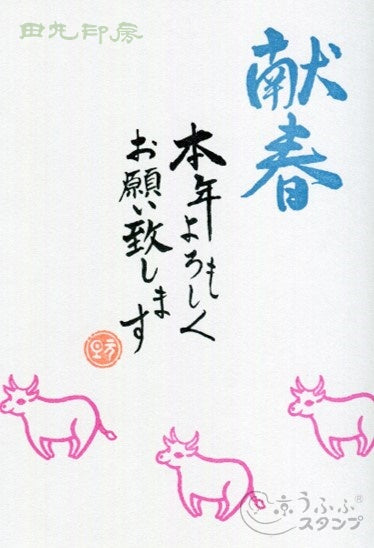 田丸印房
献春
本年もよろしく
お願い致します
京うふふ®
スタンプ